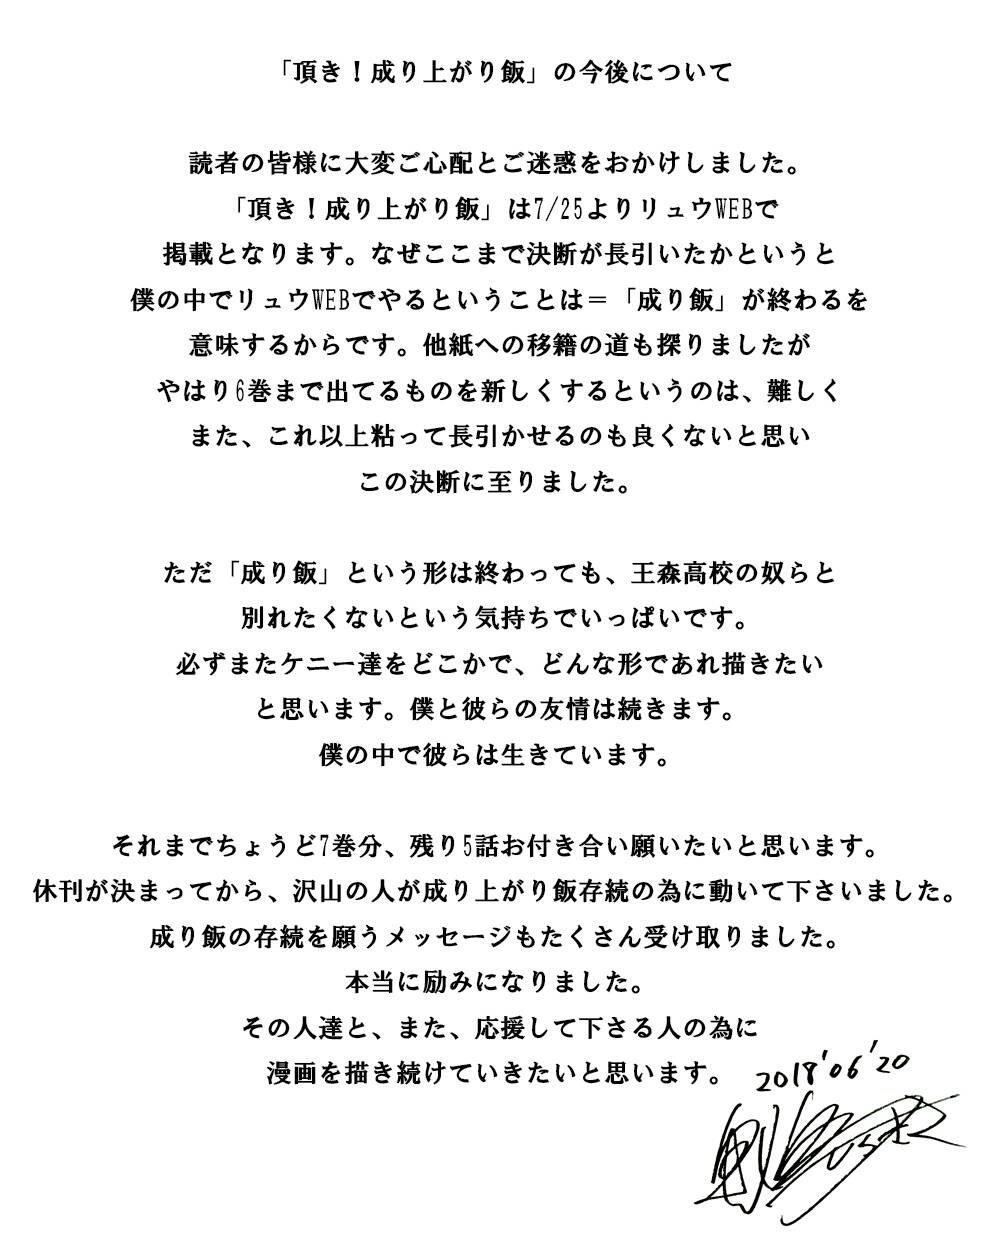 「頂き！成り上がり飯」の今後について
読者の皆様に大変ご心配とご迷惑をおかけしました。
「頂き！成り上がり飯」は7/25よりリュウWEBで
掲載となります。なぜここまで決断が長引いたかというと
僕の中でリュウWEBでやるということは＝「成り飯」が終わるを
意味するからです。他紙への移籍の道も探りましたが
やはり6巻まで出てるものを新しくするというのは、難しく
また、これ以上粘って長引かせるのも良くないと思い
この決断に至りました。
ただ「成り飯」という形は終わっても、王森高校の奴らと
別れたくないという気持ちでいっぱいです。
必ずまたケニー達をどこかで、どんな形であれ描きたい
と思います。僕と彼らの友情は続きます。
僕の中で彼らは生きています。
それまでちょうど7巻分、残り5話お付き合い願いたいと思います。
休刊が決まってから、沢山の人が成り上がり飯存続の為に動いて下さいました。
成り飯の存続を願うメッセージもたくさん受け取りました。
本当に励みになりました。
その人達と、また、応援して下さる人の為に
漫画を描き続けていきたいと思います。
2018'06'20